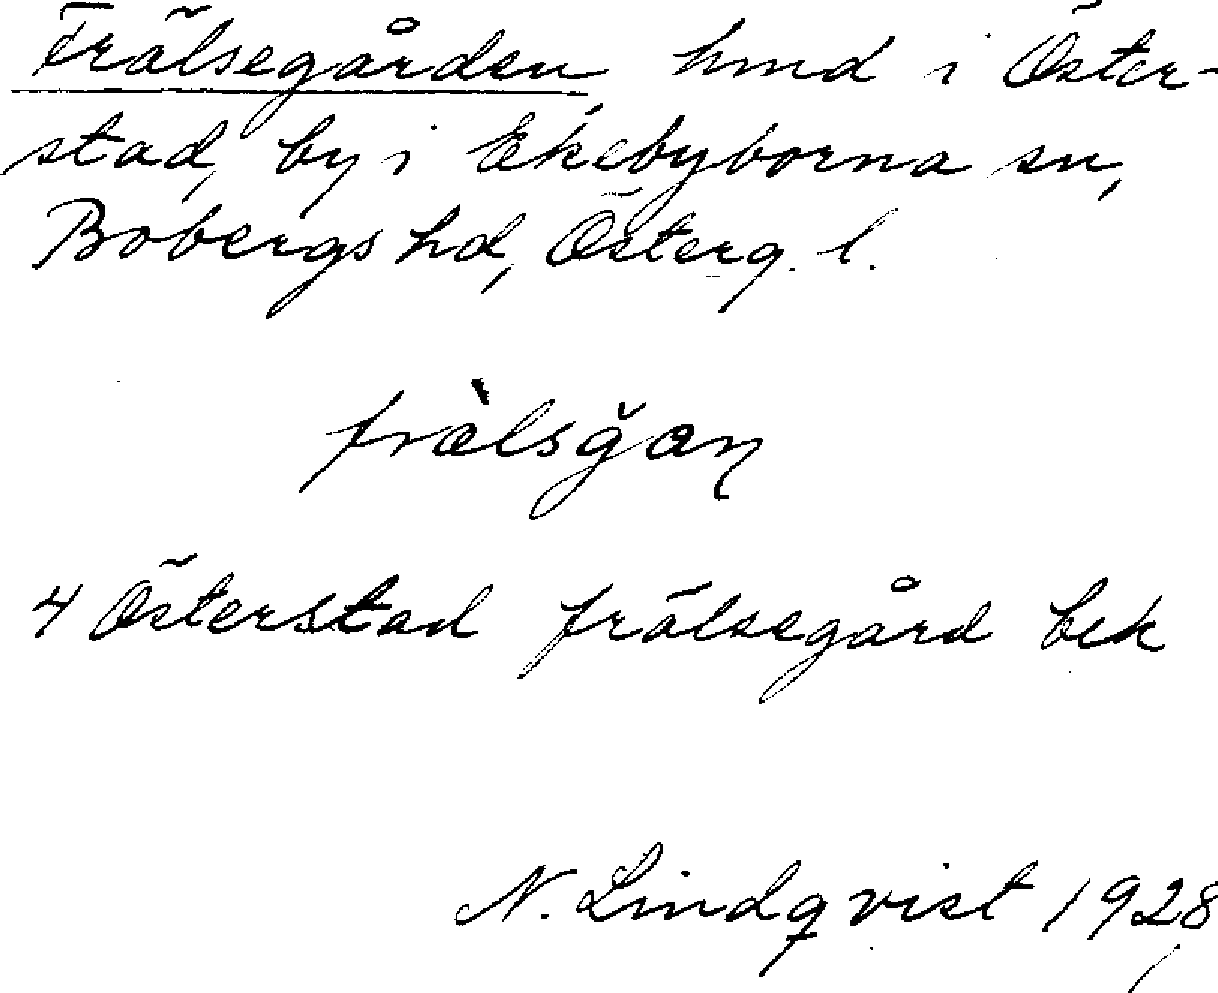 Frälsegården, hmd i Öster-
stad, by i Ekebyborna sn,
Bobergs hd, Österg. l.
frælsğaṇ
4 Österstad frälsegård bek
N. Lindqvist 1928